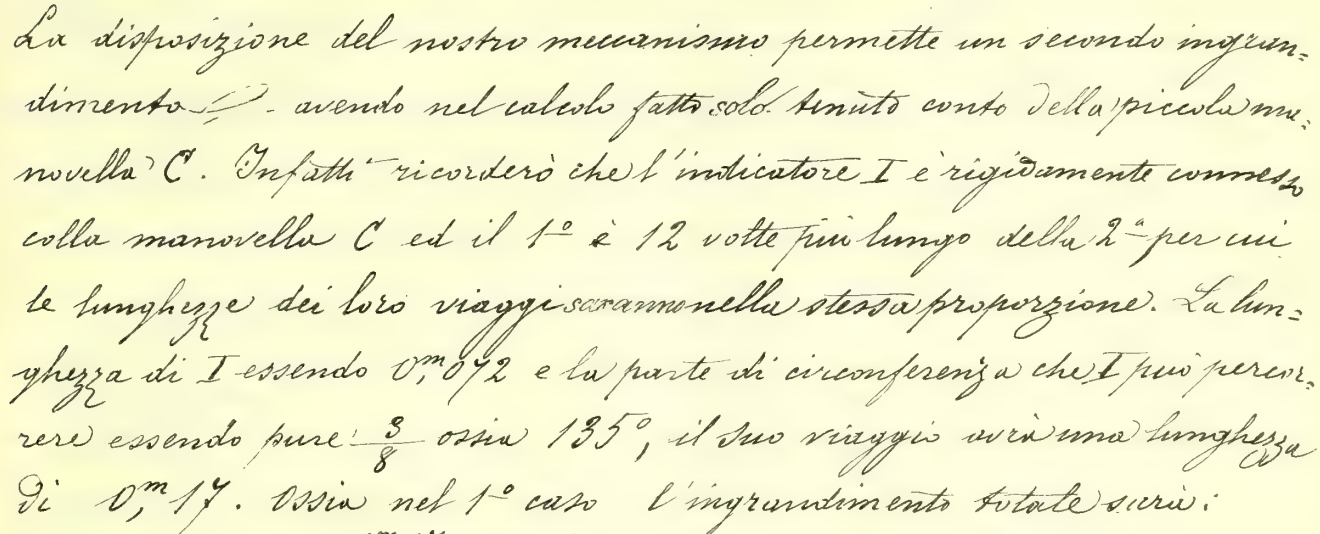 La disposizione del nostro meccanismo permette un secondo ingran=
dimento - avendo nel calcolo fatto solo tenuto conto della piccola ma=
novella C. Infatti ricorderò che l'indicatore I è rigidamente connesso
colla manovella C ed il 1º è 12 volte più lungo della 2ª per cui
le lunghezze dei loro viaggi saranno nella stessa proporzione. La lun=
ghezza di I essendo 0,ᵐ072 e la parte di circonferenza che I può percor=
rere essendo pure 3/8 ossia 135°, il suo viaggio avrà una lunghezza
di 0,ᵐ17. Ossia nel 1º caso l'ingrandimento totale sarà: